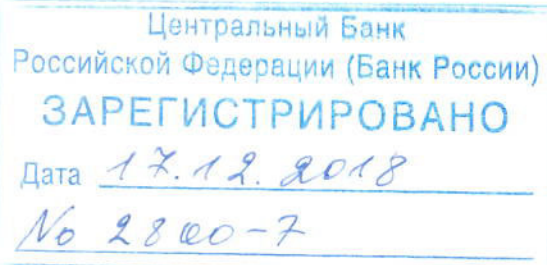 Центральный Банк
Российской Федерации (Банк России)
ЗАРЕГИСТРИРОВАНО
Дата 17.12.2018
№ 2800-7